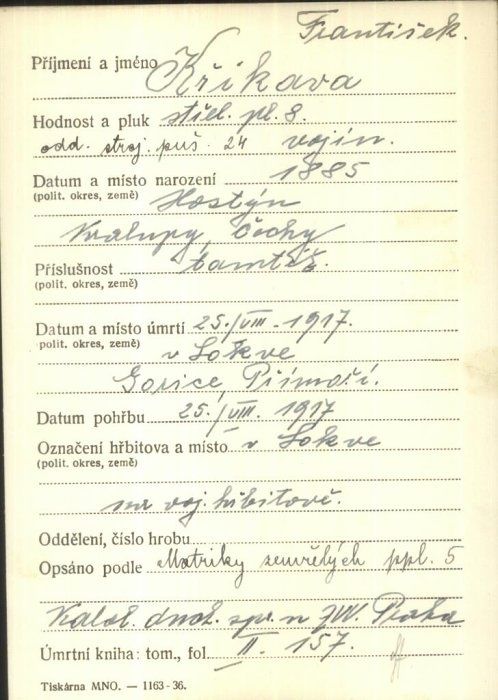 František.
Příjmení a jméno Křikava
Hodnost a pluk střel. pl. 8.
odd. stroj. puš. 24 vojín.
Datum a místo narození 1885
(polit. okres, země) Hostýn
Kralupy, Čechy
Příslušnost tamtéž.
(polit. okres, země)
Datum a místo úmrtí 25./VIII. 1917.
(polit. okres, země) v Lokve
Gorice, Přímoří.
Datum pohřbu 25./VIII. 1917
Označení hřbitova a místo v Lokve
(polit. okres, země)
na voj. hřbitově.
Oddělení, číslo hrobu
Opsáno podle Matriky zemřelých ppl. 5
duch. spr. Praha
Úmrtní kniha: tom., fol. II. 157.
Tiskárna MNO. — 1163-36.